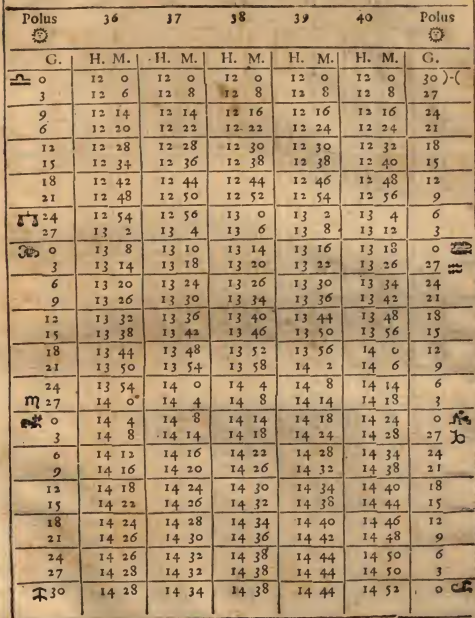 Polus 36 37 38 39 40 Polus
G. H. M. H. M. H. M. H. M. H. M. G.
♎ 0 12 0 12 0 12 0 12 0 12 0 30 )-(
3 12 6 12 8 12 8 12 8 12 8 27
9 12 14 12 14 12 16 12 16 12 16 24
6 12 20 12 22 12 22 12 24 12 24 21
12 12 28 12 28 12 30 12 30 12 32 18
15 12 34 12 36 12 38 12 38 12 40 15
18 12 42 12 44 12 44 12 46 12 48 12
21 12 48 12 50 12 52 12 54 12 56 9
24 12 54 12 56 13 0 13 2 13 4 6
27 13 2 13 4 13 6 13 8 13 12 3
0 13 8 13 10 13 14 13 16 13 18 0
3 13 14 13 18 13 20 13 22 13 26 27 ♒
6 13 20 13 24 13 26 13 30 13 34 24
9 13 26 13 30 13 34 13 36 13 42 21
12 13 32 13 36 13 40 13 44 13 48 18
15 13 38 13 42 13 46 13 50 13 56 15
18 13 44 13 48 13 52 13 56 14 0 12
21 13 50 13 54 13 58 14 2 14 6 9
24 13 54 14 0 14 4 14 8 14 14 6
♏ 27 14 0 14 4 14 8 14 14 14 18 3
0 14 4 14 8 14 14 14 18 14 24 0
3 14 8 14 14 14 18 14 24 14 28 27 ♑
6 14 12 14 16 14 22 14 28 14 34 24
9 14 16 14 20 14 26 14 32 14 38 21
12 14 18 14 24 14 30 14 34 14 40 18
15 14 22 14 26 14 32 14 38 14 44 15
18 14 24 14 28 14 34 14 40 14 46 12
21 14 26 14 30 14 36 14 42 14 48 9
24 14 26 14 32 14 38 14 44 14 50 6
27 14 28 14 32 14 38 14 44 14 50 3
30 14 28 14 34 14 38 14 44 14 52 0